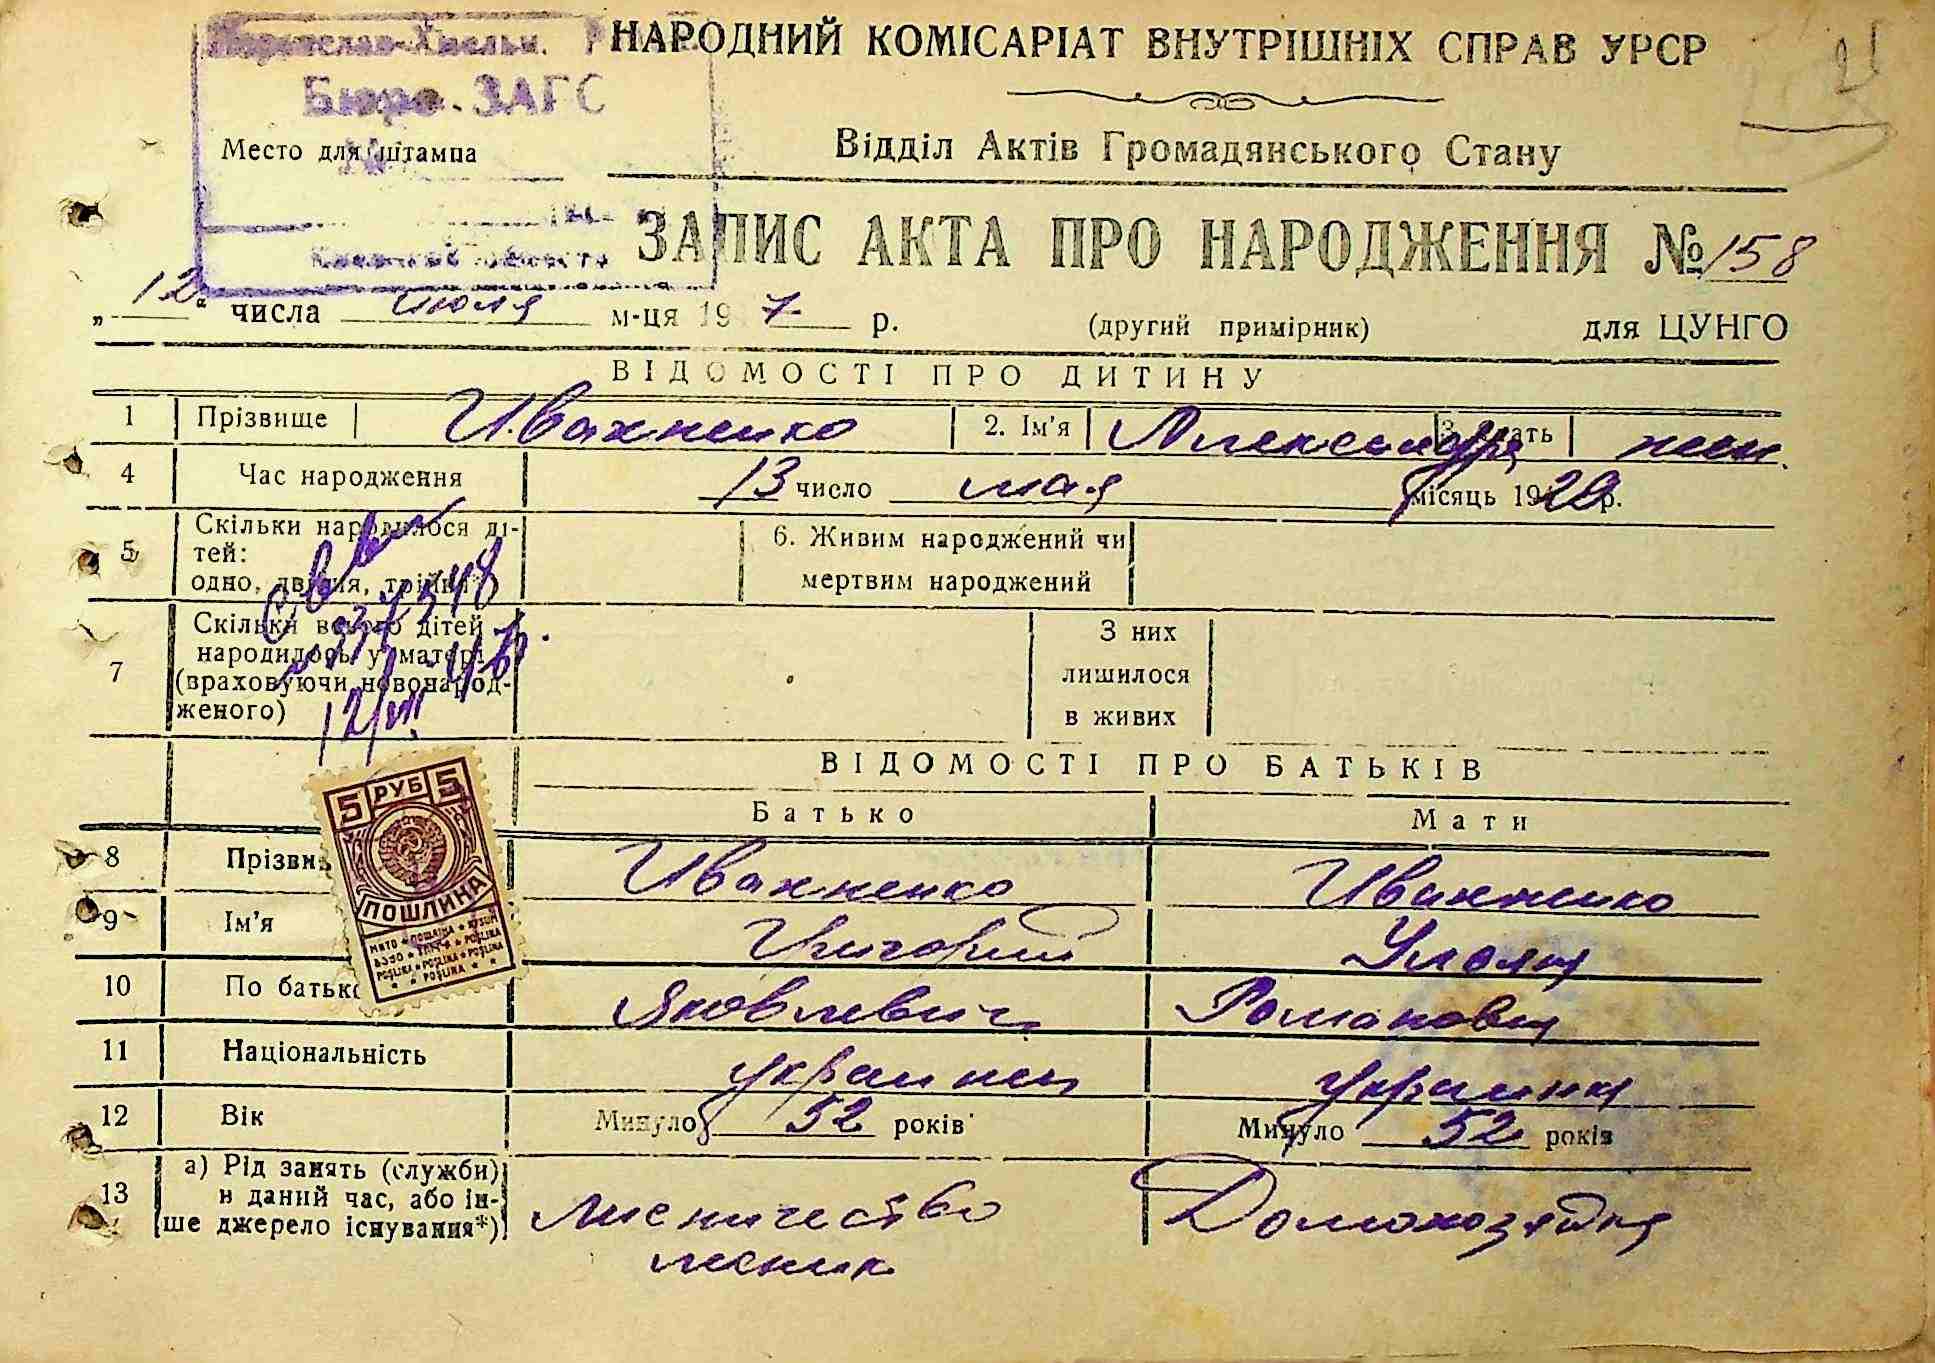 Переяслав-Хмельн.
Бюро ЗАГС
Место для штампа
НАРОДНИЙ КОМІСАРІАТ ВНУТРІШНІХ СПРАВ УРСР
Відділ Актів Громадянського Стану
ЗАПИС АКТА ПРО НАРОДЖЕННЯ № 158
„12“ числа июля м-ця 1947 р. (другий примірник) для ЦУНГО
ВІДОМОСТІ ПРО ДИТИНУ
1 Прізвище Ивахненко 2. Ім'я Александра 3. Стать жен.
4 Час народження 13 число мая місяць 1920 р.
5 Скільки народилося ді-
тей:
одно, двійня, трійня*)
6. Живим народжений чи
мертвим народжений
7 Скільки всього дітей
народилось у матері
(враховуючи новонарод-
женого)
З них
лишилося
в живих
ВІДОМОСТІ ПРО БАТЬКІВ
Батько Мати
8 Прізви Ивахненко Ивахненко
9 Ім'я Григорий Ульяна
10 По батько Яковлевич Романовна
11 Національність украинец украинка
12 Вік Минуло 52 років Минуло 52 років
13 а) Рід занять (служби)
в даний час, або ін-
ше джерело існування*)
лисничество
лесник
Домохозяйка
5 РУБ 5
ПОШЛИНА